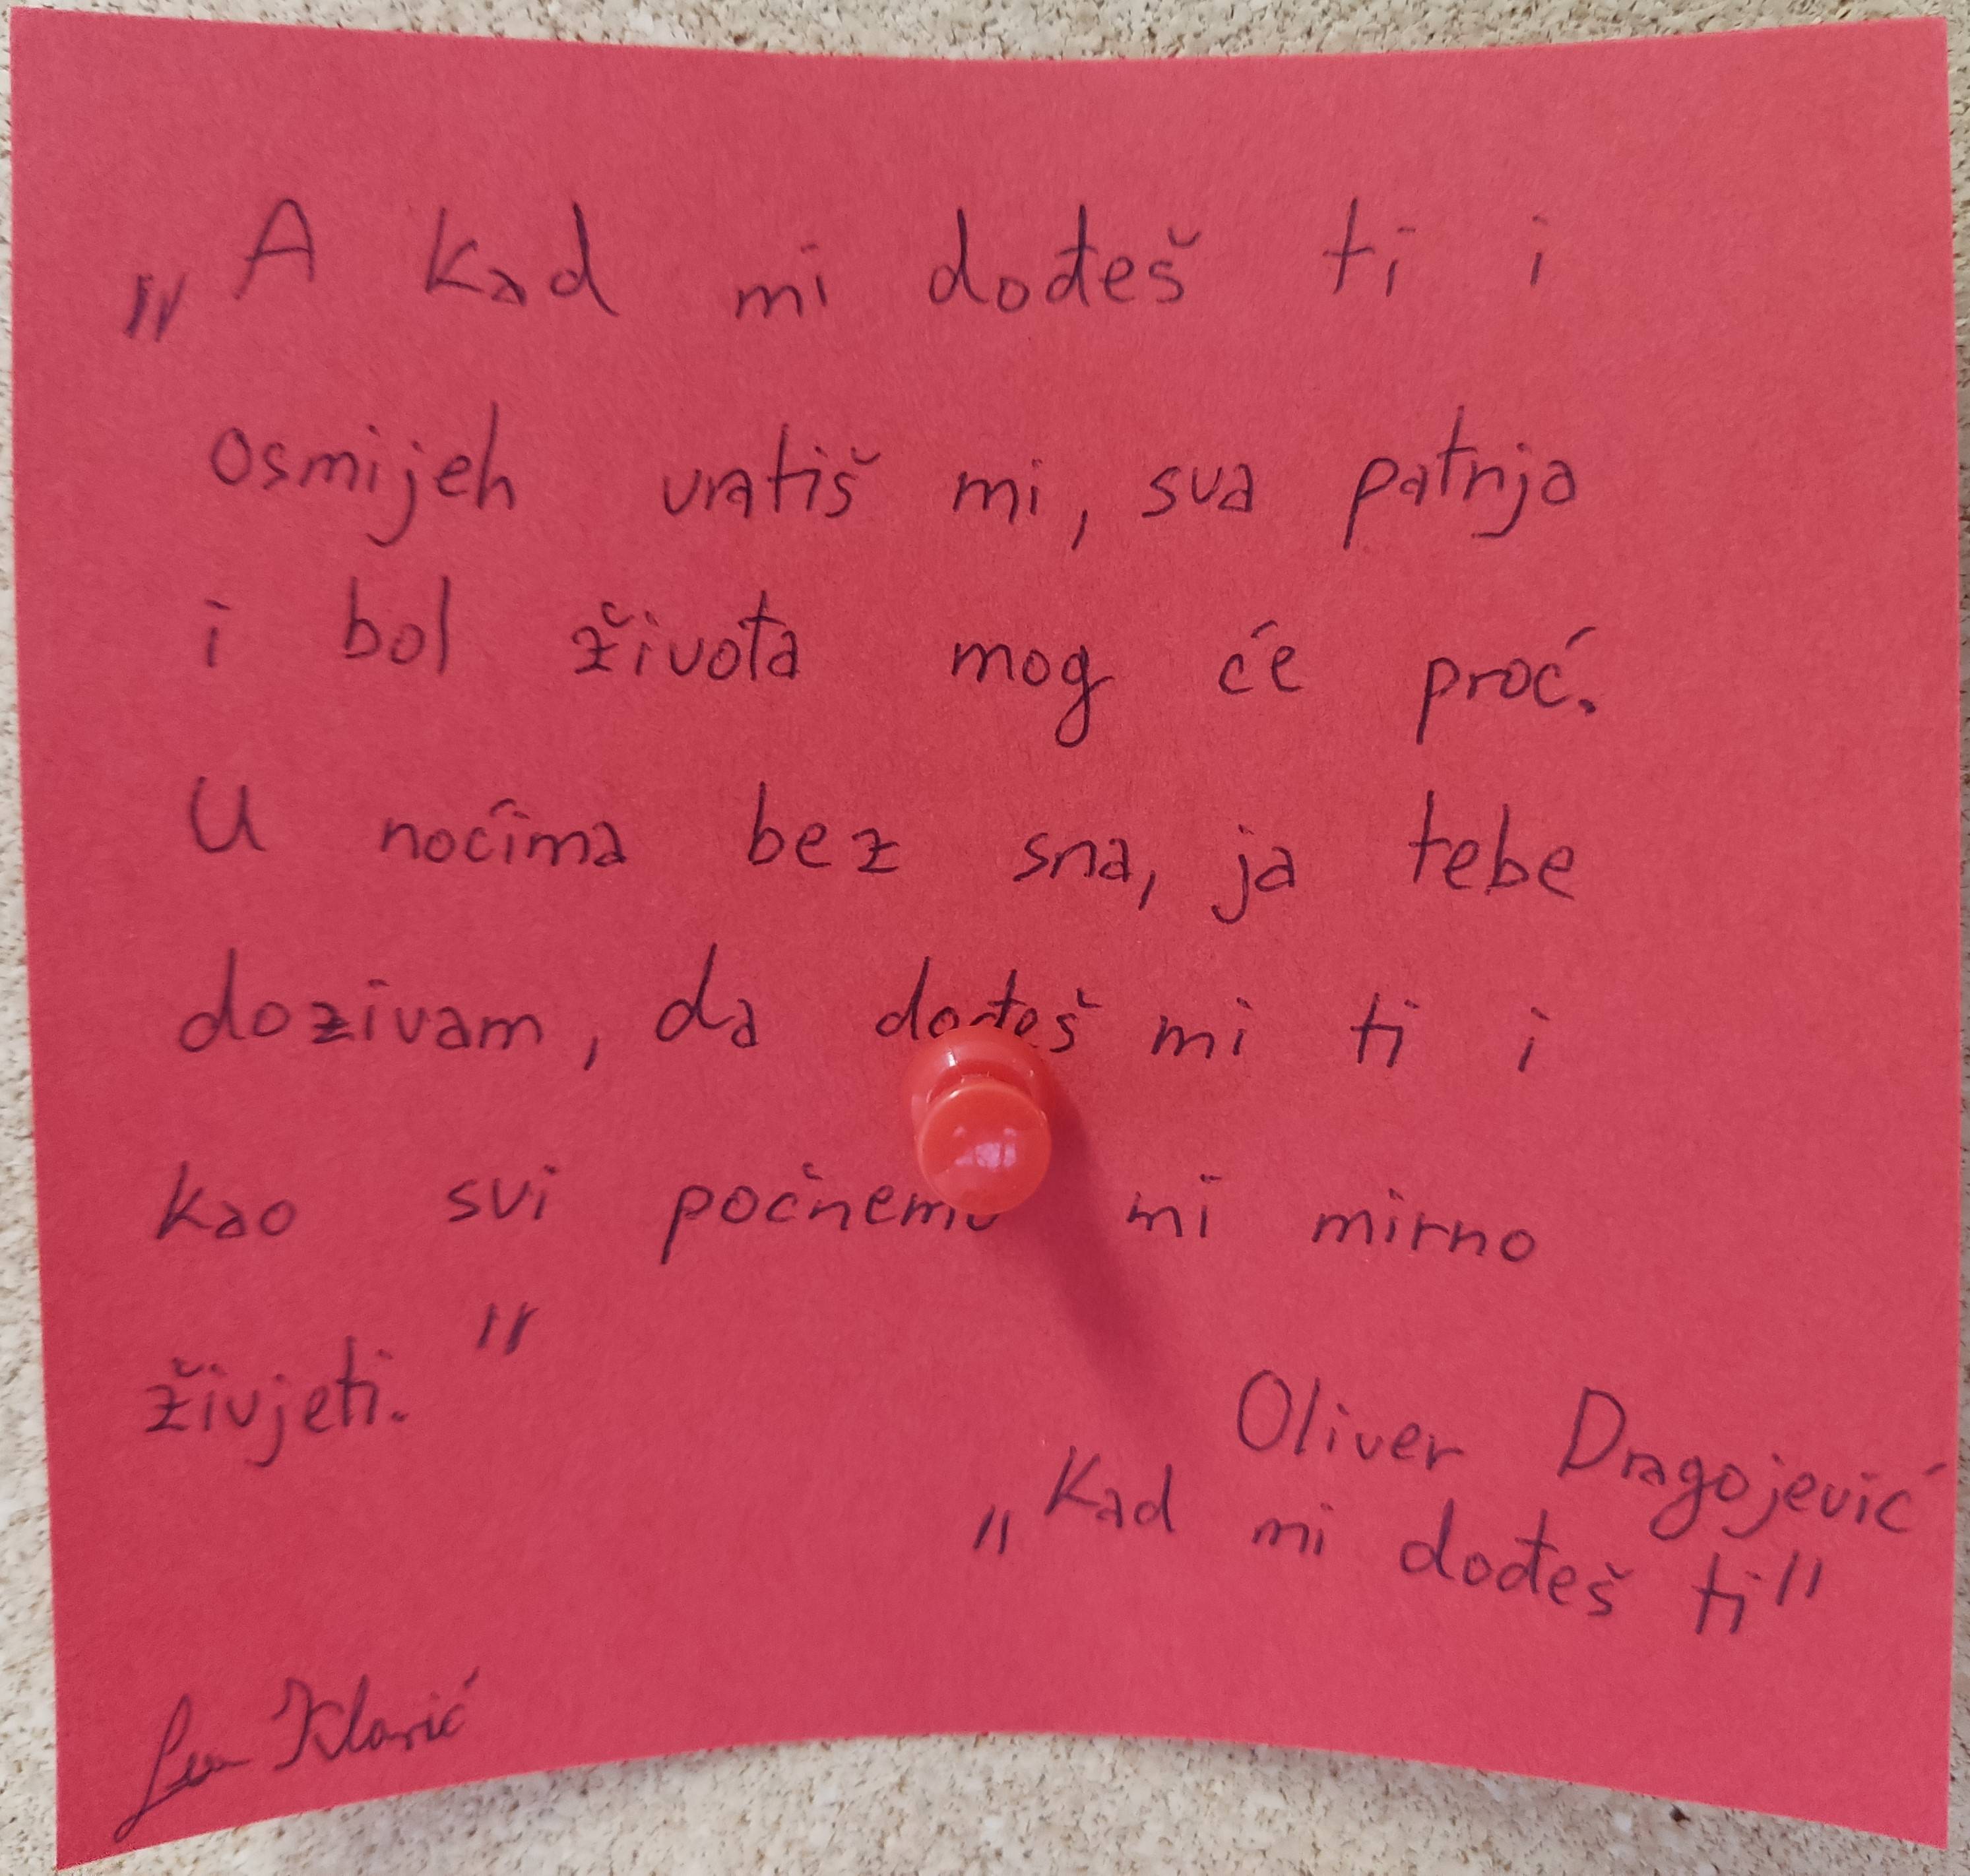 „A kad mi dođeš ti i
osmijeh vratiš mi, sva patnja
i bol života mog će proć.
U noćima bez sna, ja tebe
dozivam, da dođeš mi ti i
kao svi počnemo mi mirno
živjeti."
Oliver Dragojević
„Kad mi dođeš ti"
Klarić